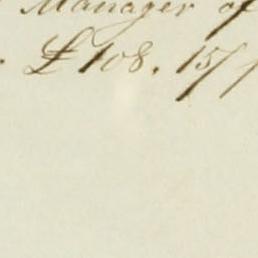 Manager of
£108. 15/